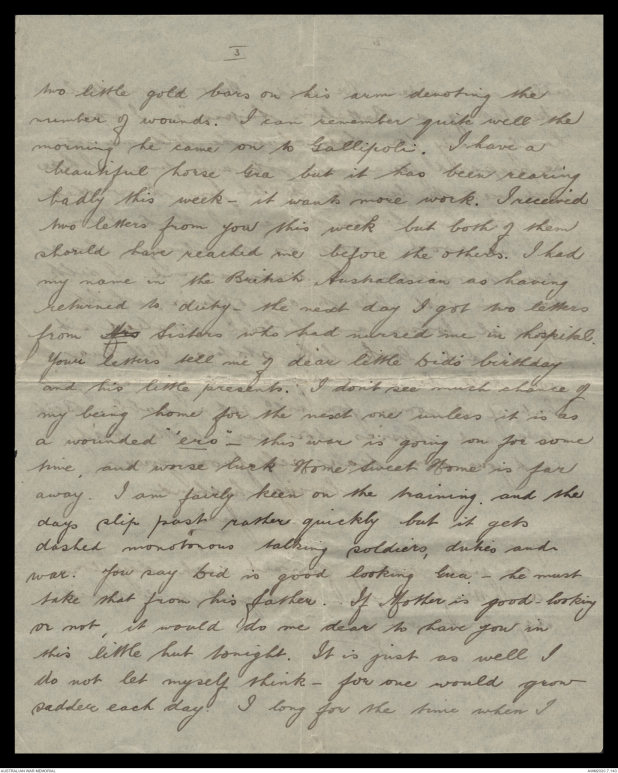 3
two little gold bars on his arm denoting the
number of wounds. I can remember quite well the
morning he came on to Gallipoli. I have a
beautiful horse Gra but it has been rearing
badly this week – it wants more work. I received
two letters from you this week but both of them
should have reached me before the others. I had
my name in the British Australasian as having
returned to duty – the next day I got two letters
from Sisters who had nursed me in hospital.
Your letters tell me of dear little Bids birthday
and his little presents. I don't see much chance of
my being home for the next one unless it is as
a wounded "ero" – this war is going on for some
time, and worse luck Home Sweet Home is far
away. I am fairly keen on the training, and the
days slip past rather quickly but it gets
dashed monotonous talking soldiers, duties and
war. You say Bid is good looking Gra, – he must
take that from his father. If Mother is good-looking
or not, it would do me dear to have you in
this little hut tonight. It is just as well I
do not let myself think – for one would grow
sadder each day. I long for the time when I
AUSTRALIAN WAR MEMORIAL